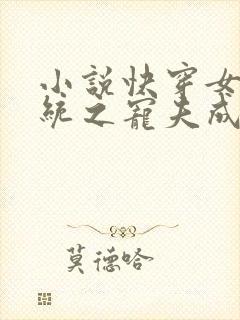 小說快穿女
統之寵夫成
莫德哈